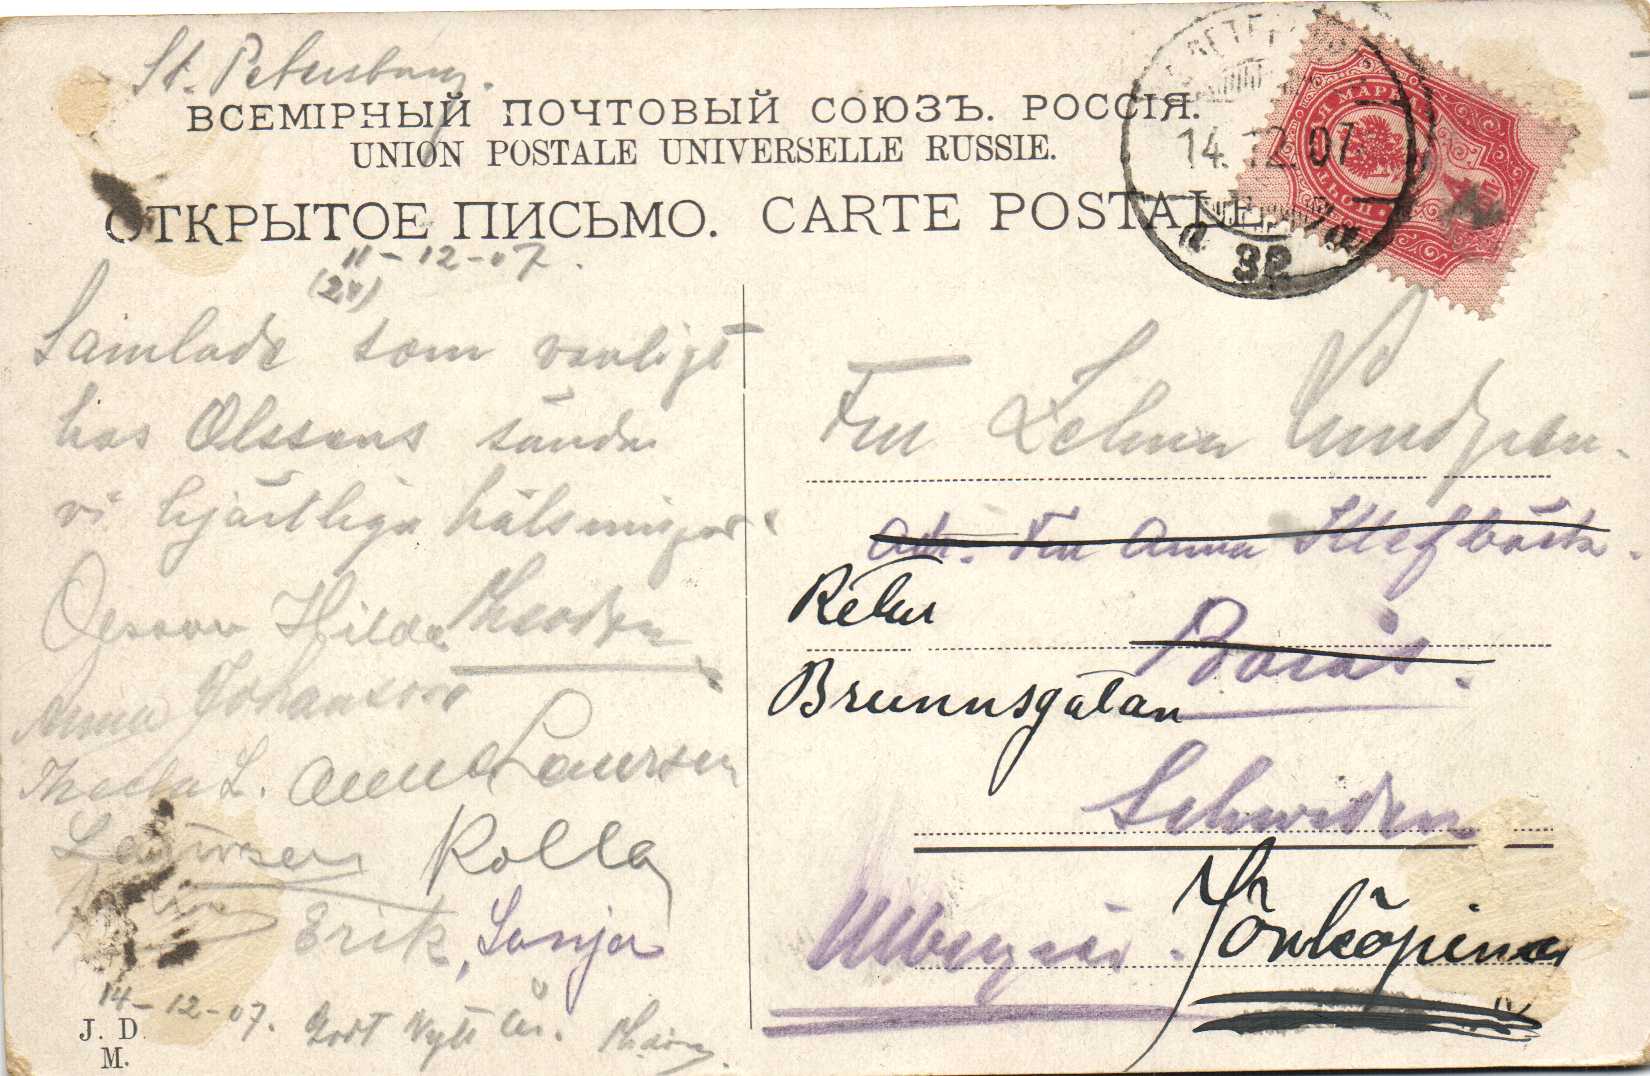 St. Petersburg.
ВСЕМІРНЫЙ ПОЧТОВЫЙ СОЮЗЪ. РОССІЯ.
UNION POSTALE UNIVERSELLE RUSSIE.
ОТКРЫТОЕ ПИСЬМО. CARTE POSTALE.
14.12.07
32
МАРКА
11-12-07.
Samlade som vanligt
hos Olssons sända
vi hjärtliga hälsningar
Hilda
Anna Johansson
Thecla L. Anna Laursen
Laursen Rolla
Erik, Sonja
14-12-07. Godt Nytt År.
J. D.
M.
Fru Selma Lundgren.
adr. Fru Anna
Retur
Borås.
Brunnsgatan
Schweden
Jönköping